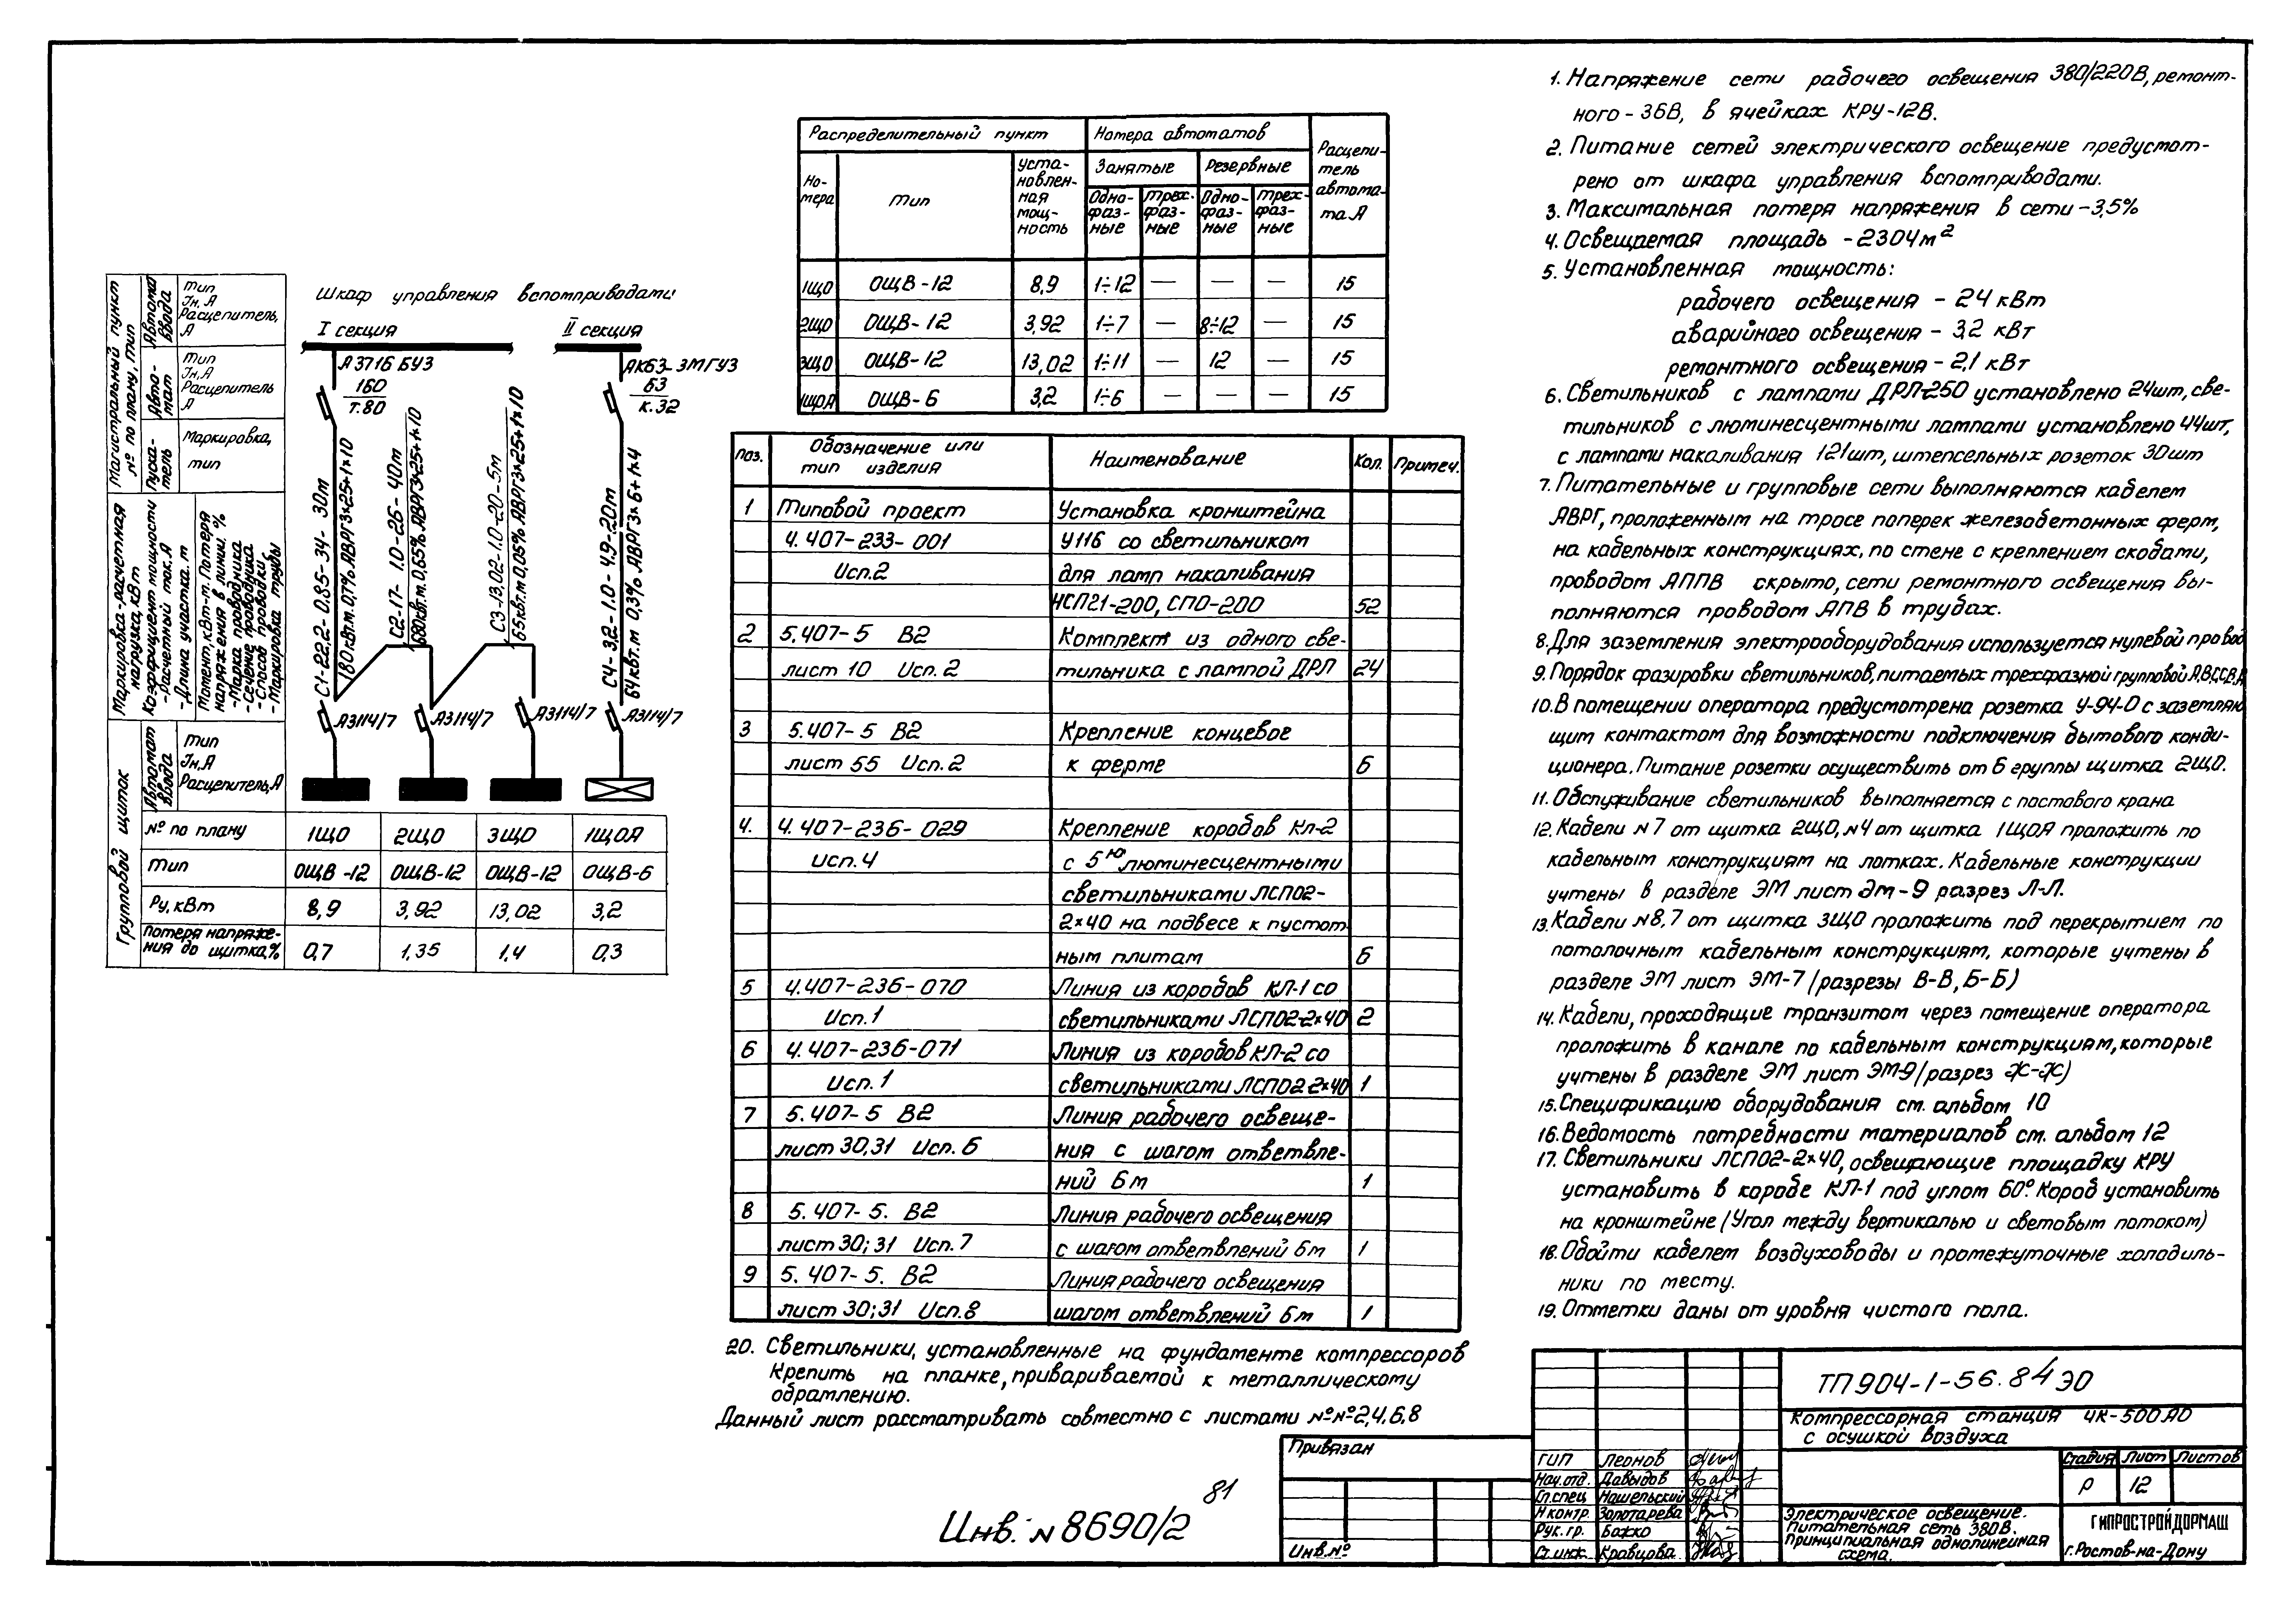 Магистральный пункт
№ по плану, тип
Автомат ввода
Тип
Iн, А
Расцепитель, А
Автомат
Тип
Iн, А
Расцепитель А
Пускатель
Маркировка, тип
Маркировка-расчетная нагрузка, кВт
Коэффициент мощности
- Расчетный ток, А
- Длина участка, м
Момент, кВт-м. Потеря
напряжения в линии, %
- Марка проводника
- Сечение проводника
- Способ проводки
- Маркировка трубы
Групповой щиток
Автомат ввода
Тип
Iн, А
Расцепитель, А
Шкаф управления вспомприводами
I секция
II секция
А3716 БУЗ
160
т.80
АК63-3МГУЗ
63
к.32
С1-22,2-0,85-34-30м
180кВт.м 0,7% АВРГ3×25+1×10
С2-17-1.0-26-40м
680кВт.м 0,65% АВРГ3×25+1×10
С3-13,02-1.0-20-5м
65кВт.м 0,05% АВРГ3×25+1×10
С4-3,2-1.0-4.9-20м
64кВт.м 0,3% АВРГ3×6+1×4
А3114/7 А3114/7 А3114/7 А3114/7
№ по плану 1ЩО 2ЩО 3ЩО 1ЩОА
Тип ОЩВ-12 ОЩВ-12 ОЩВ-12 ОЩВ-6
Ру, кВт 8,9 3,92 13,02 3,2
Потеря напряже-
ния до щитка,% 0,7 1,35 1,4 0,3
Распределительный пункт Номера автоматов Расцепи-
тель
автома-
та А
Но-
мера
Тип
Уста-
новлен-
ная
мощ-
ность
Занятые Резервные
Одно-
фаз-
ные
Трех-
фаз-
ные
Одно-
фаз-
ные
Трех-
фаз-
ные
1ЩО ОЩВ-12 8,9 1÷12 — — — 15
2ЩО ОЩВ-12 3,92 1÷7 — 8÷12 — 15
3ЩО ОЩВ-12 13,02 1÷11 — 12 — 15
1ЩОА ОЩВ-6 3,2 1÷6 — — — 15
Поз. Обозначение или
тип изделия Наименование Кол. Примеч.
1 Типовой проект Установка кронштейна
4.407-233-001 У116 со светильником
Исп.2 для ламп накаливания
НСП21-200, СПО-200 52
2 5.407-5 В2 Комплект из одного све-
лист 10 Исп. 2 тильника с лампой ДРЛ 24
3 5.407-5 В2 Крепление концевое
лист 55 Исп. 2 к ферме 6
4. 4.407-236-029 Крепление коробов Кл-2
Исп.4 с 5ю люминесцентными
светильниками ЛСП02-
2×40 на подвесе к пустот
ным плитам 6
5 4.407-236-070 Линия из коробов КЛ-1 со
Исп.1 светильниками ЛСП02-2×40 2
6 4.407-236-071 Линия из коробов КЛ-2 со
Исп.1 светильниками ЛСП02-2×40 1
7 5.407-5 В2 Линия рабочего освеще-
лист 30,31 Исп. 6 ния с шагом ответвле-
ний 6м 1
8 5.407-5. В2 Линия рабочего освещения
лист 30; 31 Исп. 7 с шагом ответвлений 6м 1
9 5.407-5. В2 Линия рабочего освещения
лист 30; 31 Исп. 8 шагом ответвлений 6м 1
20. Светильники, установленные на фундаменте компрессоров
Крепить на планке, привариваемой к металлическому
обрамлению.
Данный лист рассматривать совместно с листами №№2,4,6,8
1. Напряжение сети рабочего освещения 380/220В, ремонт-
ного - 36В, в ячейках КРУ-12В.
2. Питание сетей электрического освещение предусмот-
рено от шкафа управления вспомприводами.
3. Максимальная потеря напряжения в сети -3,5%
4. Освещаемая площадь -2304м²
5. Установленная мощность:
рабочего освещения - 24 кВт
аварийного освещения - 3,2 кВт
ремонтного освещения - 2,1 кВт
6. Светильников с лампами ДРЛ-250 установлено 24шт, све-
тильников с люминесцентными лампами установлено 44шт,
с лампами накаливания 121шт, штепсельных розеток 30шт
7. Питательные и групповые сети выполняются кабелем
АВРГ, проложенным на тросе поперек железобетонных ферм,
на кабельных конструкциях, по стене с креплением скобами,
проводом АППВ скрыто, сети ремонтного освещения вы-
полняются проводом АПВ в трубах.
8. Для заземления электрооборудования используется нулевой провод
9. Порядок фазировки светильников, питаемых трехфазной групповой А,В,С,С,В,А
10. В помещении оператора предусмотрена розетка У-94-0 с заземляю
щим контактом для возможности подключения бытового конди-
ционера. Питание розетки осуществить от 6 группы щитка 2ЩО.
11. Обслуживание светильников выполняется с мостового крана
12. Кабели №7 от щитка 2ЩО, №4 от щитка 1ЩОА проложить по
кабельным конструкциям на лотках. Кабельные конструкции
учтены в разделе ЭМ лист эм-9 разрез Л-Л.
13. Кабели №8,7 от щитка 3ЩО проложить под перекрытием по
потолочным кабельным конструкциям, которые учтены в
разделе ЭМ лист ЭМ-7 /разрезы В-В, Б-Б)
14. Кабели, проходящие транзитом через помещение оператора
проложить в канале по кабельным конструкциям, которые
учтены в разделе ЭМ лист ЭМ-9 /разрез Ж-Ж)
15. Спецификацию оборудования см. альбом 10
16. Ведомость потребности материалов см. альбом 12
17. Светильники ЛСП02-2×40, освещающие площадку КРУ
установить в коробе КЛ-1 под углом 60°. Короб установить
на кронштейне (Угол между вертикалью и световым потоком)
18. Обойти кабелем воздуховоды и промежуточные холодиль-
ники по месту.
19. Отметки даны от уровня чистого пола.
ТП 904-1-56.84 ЭО
Компрессорная станция 4К-500АО
с осушкой воздуха
Стадия Лист Листов
Р 12
ГИП Леонов
Нач.отд. Давыдов
Гл.спец Нашельский
Н контр. Золотарева
Рук. гр. Божко
Ст.инж. Кравцова
Электрическое освещение.
Питательная сеть 380В.
Принципиальная однолинейная
схема.
ГИПРОСТРОЙДОРМАШ
г.Ростов-на-Дону
Привязан
Инв.№
Инв. № 8690/2
81